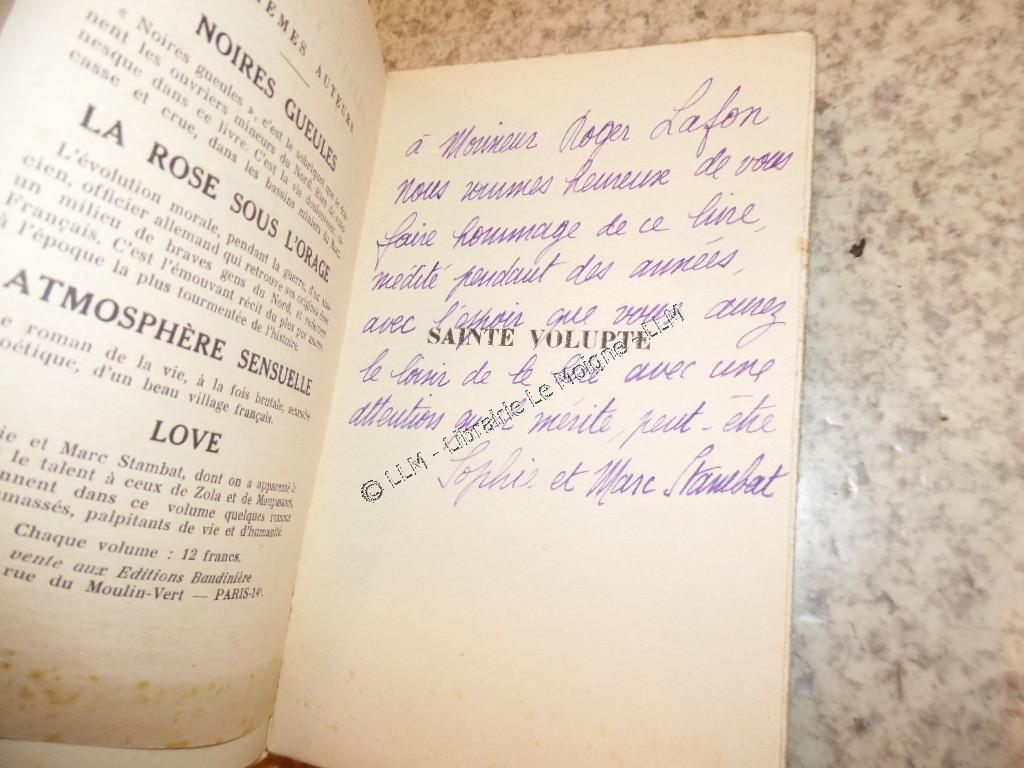 MÊMES AUTEURS
NOIRES GUEULES
« Noires gueules », c'est le sobriquet que se don-
nent les ouvriers mineurs du Nord.
nesque dans ce livre. C'est la vie
casse et crue, dans les bassins miniers du Nord.
LA ROSE SOUS L'ORAGE
L'évolution morale, pendant la guerre, d'un
cien, officier allemand qui retrouve ses origines dans
un milieu de braves gens du Nord, et redevient
Français. C'est l'émouvant récit du plus pur amour,
à l'époque la plus tourmentée de l'histoire.
ATMOSPHÈRE SENSUELLE
e roman de la vie, à la fois brutale, sensuelle
oétique, d'un beau village français.
LOVE
ie et Marc Stambat, dont on a apparenté
le talent à ceux de Zola et de Maupassant,
nnent dans ce volume quelques romans
massés, palpitants de vie et d'humanité.
Chaque volume : 12 francs.
vente aux Editions Baudinière
rue du Moulin-Vert — PARIS-14e.
à Monsieur Roger Lafon
nous sommes heureux de vous
faire hommage de ce livre,
médité pendant des années,
avec l'espoir que vous aurez
SAINTE VOLUPTÉ
le loisir de le lire avec une
attention qu'il mérite, peut-être
Sophie et Marc Stambat
© LLM - Librairie Le Moigne - LLM